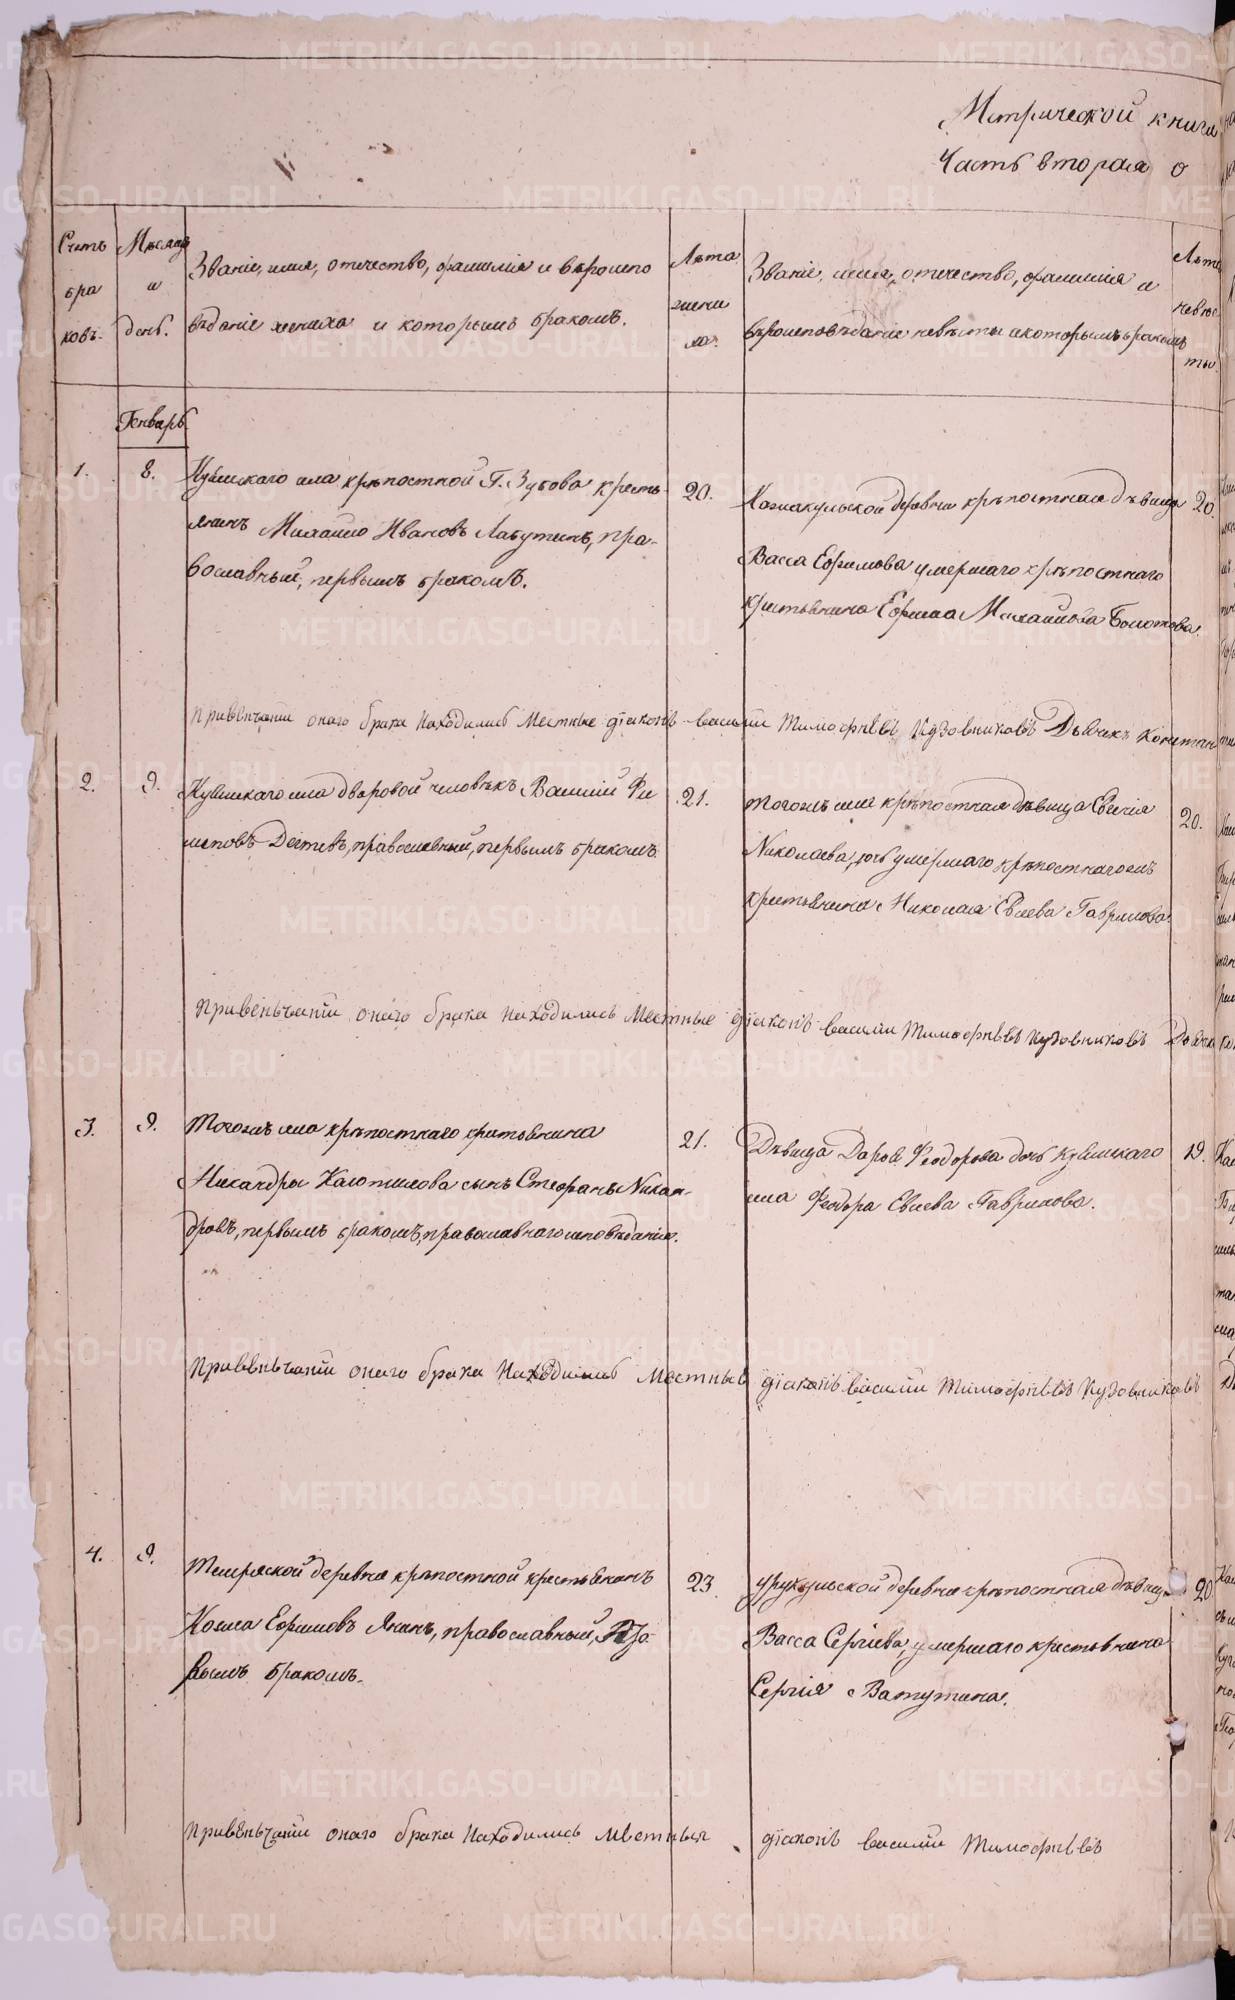 Метрической книги
Часть вторая о
Счетъ браковъ.
Мѣсяцъ и день.
Званіе, имя, отчество, фамилія и вѣроиспо
вѣданіе жениха и которымъ бракомъ.
Лѣта жениха.
Званіе, имя, отчество, фамилія и
вѣроисповѣданіе невѣсты и которымъ бракомъ
Лѣта невѣсты.
Генварь
1.
8.
села крѣпостной Г. Зубова кресть-
янинъ Михайло Ивановъ Лабутинъ, пра-
вославный, первымъ бракомъ.
20.
деревни крѣпостная дѣвица
Васса Ефимова умершаго крѣпостнаго
крестьянина Ефима Михайлова Болотова.
20.
Привѣнчаніи онаго брака находились местные діаконъ василій Тимофѣевъ Кузовниковъ Дьячекъ Констан
2.
9.
села дворовой человѣкъ Василій Фи
липовъ православный, первымъ бракомъ.
21.
Тогожъ села крѣпостная дѣвица
Николаева, дочь умершаго крѣпостнаго
крестьянина Николая Евсеева Гаврилова.
20.
Привѣньчаніи онаго брака находились местные діаконъ василій Тимофѣевъ Кузовниковъ
3.
9.
Тогожъ села крѣпостнаго крестьянина
Никандры сынъ Стефанъ Никан-
дровъ, первымъ бракомъ, православнаго исповѣданія.
21.
Дѣвица Дарья Феодорова дочь
села Феодора Евсеева Гаврилова.
19.
Привѣньчаніи онаго брака находились местныя діаконъ василій Тимофѣевъ Кузовниковъ
4.
9.
деревни крѣпостной крестьянинъ
Косма Ефимовъ Янинъ, православный,
вымъ бракомъ.
23.
Урукульской деревни крѣпостная дѣвица
Васса Сергіева, умершаго крестьянина
Сергія Ватутина.
20
Привѣньчаніи онаго брака находились местныя діаконъ василій Тимофѣевъ
METRIKI.GASO-URAL.RU